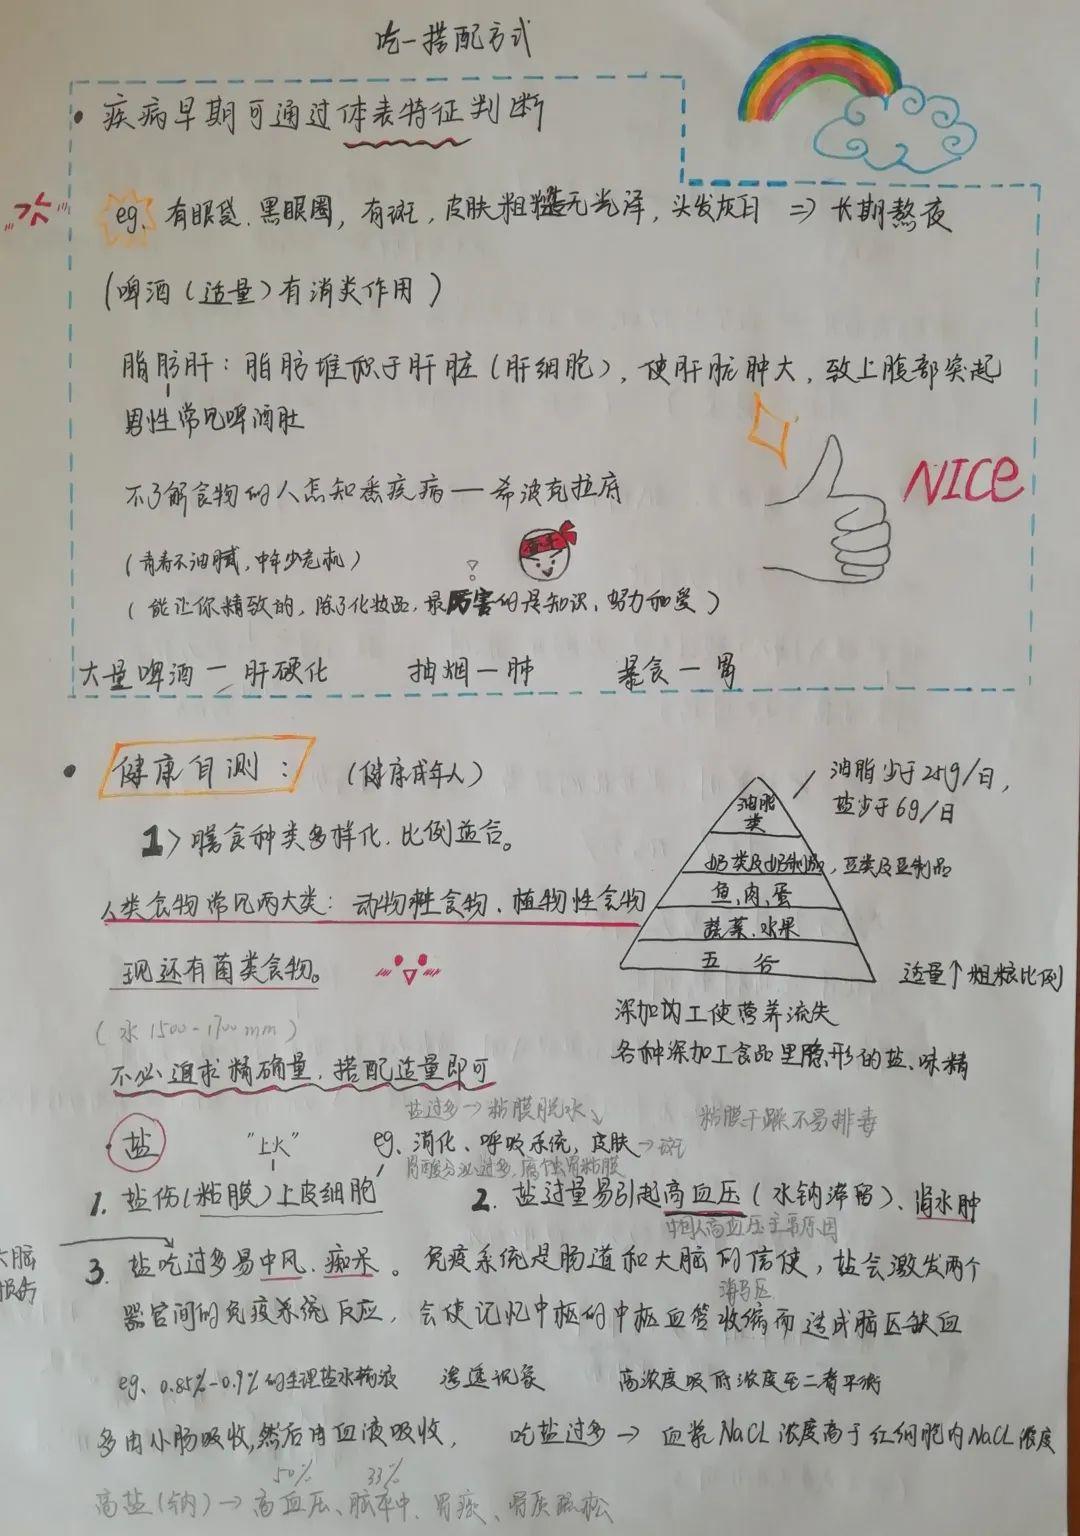 吃一搭配方式
• 疾病早期可通过体表特征判断
eg、有眼袋、黑眼圈，有斑，皮肤粗糙无光泽，头发灰白 => 长期熬夜
(啤酒（适量）有消炎作用）
脂肪肝：脂肪堆积于肝脏（肝细胞），使肝脏肿大，致上腹部突起
男性常见啤酒肚
NICE
不了解食物的人怎知悉疾病一希波克拉底
（青春不油腻，中年少危机）
（能让你精致的，除了化妆品，最厉害的是知识、努力和爱）
大量啤酒一肝硬化 抽烟一肺 暴食一胃
• 健康自测： （健康成年人）
油脂少于25g/日，
盐少于6g/日
油脂类
1> 膳食种类多样化，比例适合。
奶类及奶制品，豆类及豆制品
鱼，肉，蛋
人类食物常见两大类：动物性食物、植物性食物
蔬菜、水果
五谷
现还有菌类食物。
适量↑粗粮比例
（水1500-1700mm）
深加工使营养流失
各种深加工食品里隐形的盐、味精
不必追求精确量，搭配适量即可
盐过多→粘膜脱水 粘膜干燥不易排毒
· 盐 "上火" eg、消化、呼吸系统，皮肤→斑
胃酸分泌过多，腐蚀胃粘膜
1. 盐伤(粘膜)上皮细胞 2. 盐过量易引起高血压（水钠滞留）、消水肿
中国人高血压主要原因
大脑
损伤
3. 盐吃过多易中风、痴呆。 免疫系统是肠道和大脑的信使，盐会激发两个
海马区
器官间的免疫系统反应，会使记忆中枢的中枢血管收缩而造成脑区缺血
eg、0.85%-0.9%的生理盐水输液 渗透现象 高浓度吸附浓度至二者平衡
多由小肠吸收，然后由血液吸收， 吃盐过多→血浆NaCL浓度高于红细胞内NaCL浓度
50% 33%
高盐（钠）→高血压、脑卒中、胃癌、骨质疏松